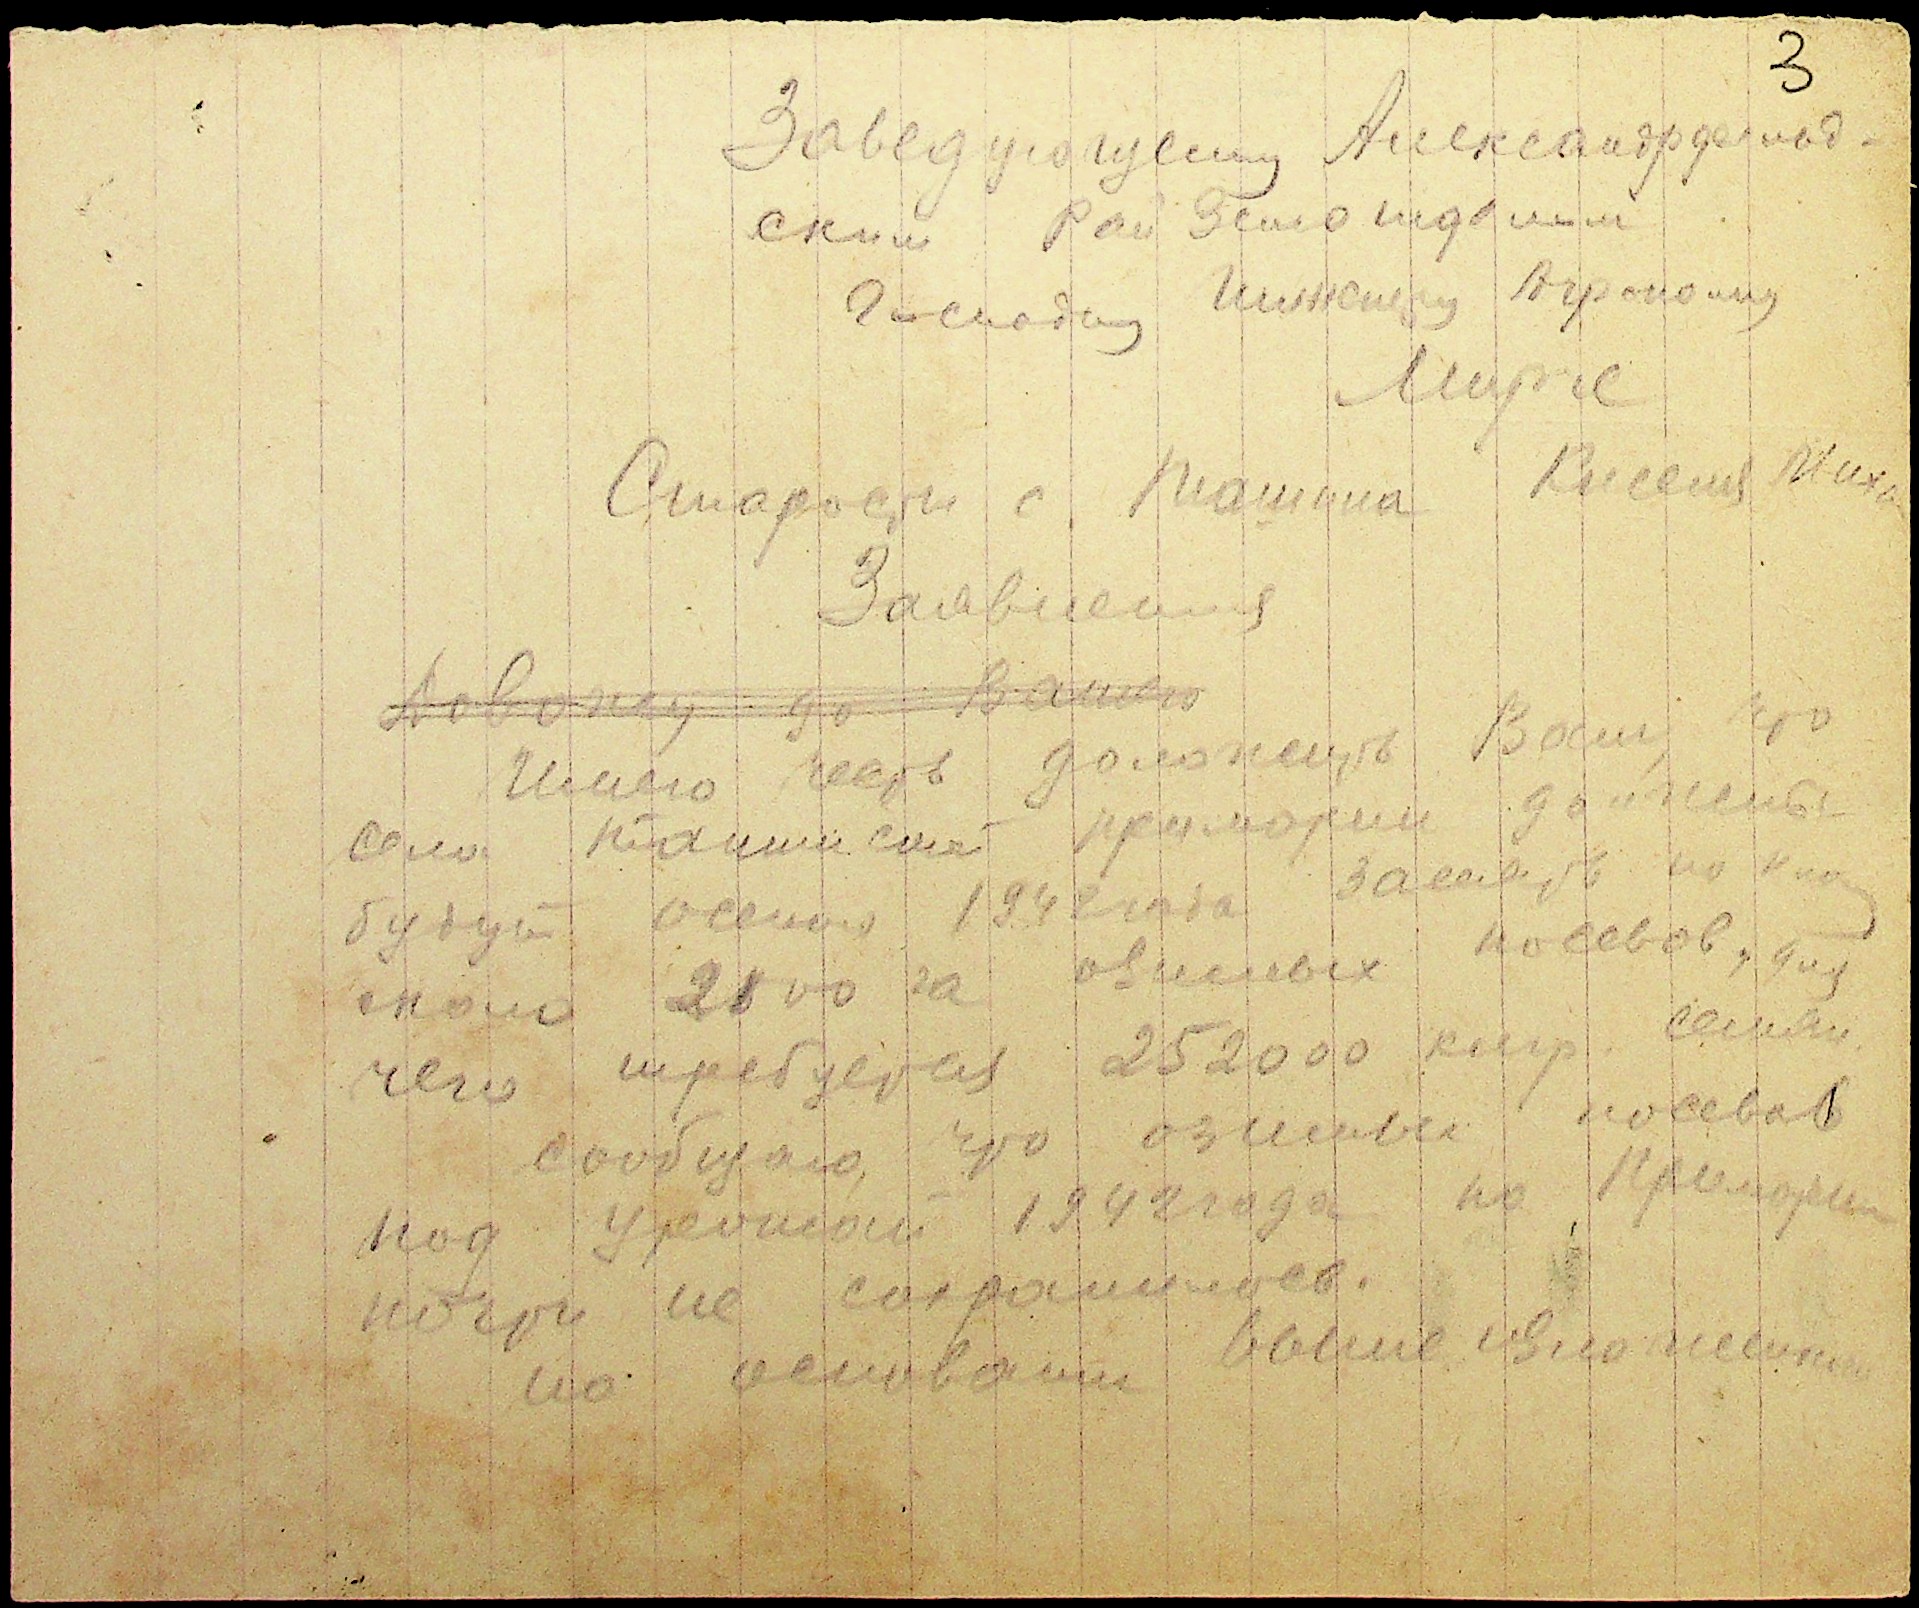 3
Заведующему Александрфельд-
ским Рай Земотделом
Господину Инженеру Агроному
Старости с. Ташина Киселя Миха
Заявления
Довожу до Вашего
Имею честь доложить Вам, что
села примарии должены
будут осенью 1942 года засеять по
около 2100 га озимых посевов, для
чего требуется 252000 клгр. семян.
сообщаю, что озимых посевов
под урожай 1942 года по Примарии
почти не сохранилось.
на основании выше изложенного